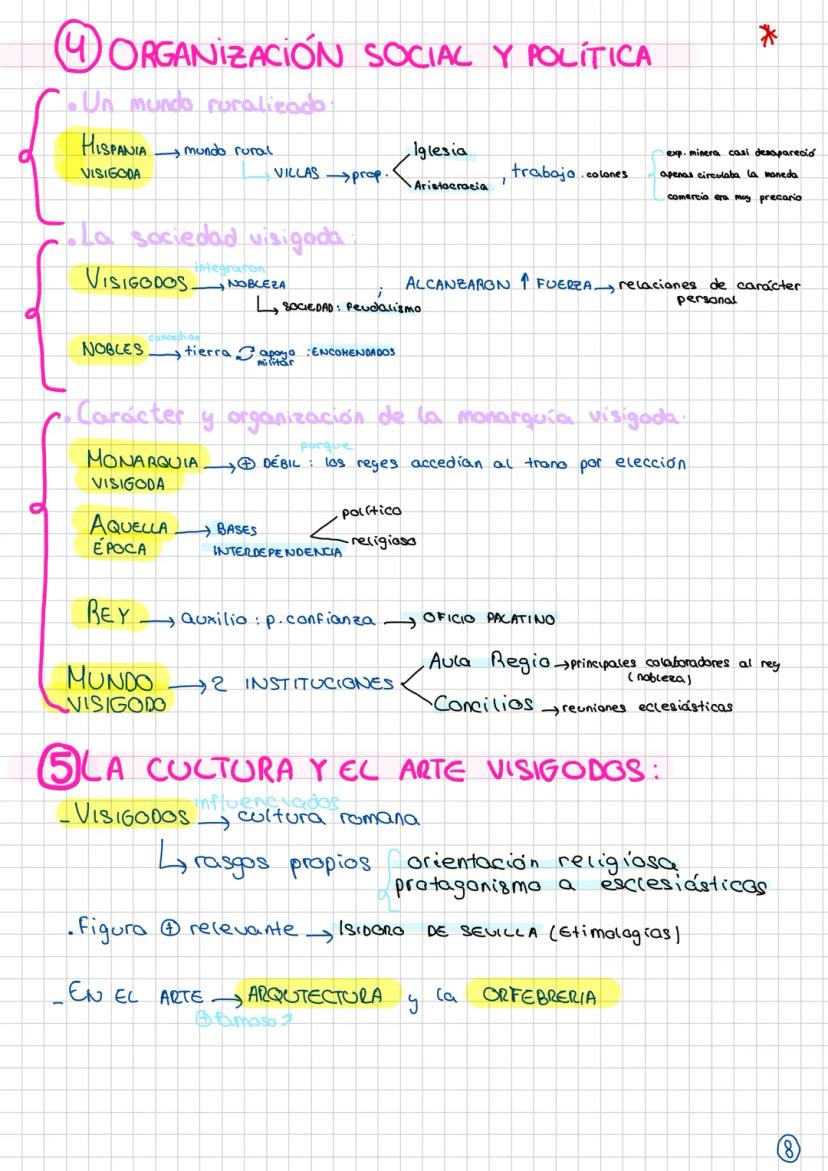 ④ ORGANIZACIÓN SOCIAL Y POLÍTICA *
• Un mundo ruralizado:
HISPANIA → mundo rural Iglesia exp. minera casi desapareció
VISIGODA ↳ VILLAS → prop. < , trabajo . colonos apenas circulaba la moneda
Aristocracia comercio era muy precario
• La sociedad visigoda:
integraron
VISIGODOS → NOBLEZA ; ALCANZARON ↑ FUERZA → relaciones de carácter
↳ SOCIEDAD : feudalismo personal
concedían
NOBLES → tierra apoyo : ENCOMENDADOS
militar
• Carácter y organización de la monarquía visigoda.
porque
MONARQUIA → ⊕ DÉBIL : los reyes accedían al trono por elección
VISIGODA
político
AQUELLA → BASES <
ÉPOCA INTERDEPENDENCIA religioso
REY → auxilio : p. confianza → OFICIO PALATINO
Aula Regio → principales colaboradores al rey
MUNDO → 2 INSTITUCIONES < (nobleza)
VISIGODO Concilios → reuniones eclesiásticas
⑤ LA CULTURA Y EL ARTE VISIGODOS:
influenciados
- VISIGODOS → cultura romana
↳ rasgos propios { orientación religiosa
protagonismo a esclesiásticos
. Figura ⊕ relevante → ISIDORO DE SEVILLA (Etimologías)
- EN EL ARTE → ARQUTECTURA y la ORFEBRERIA
⊕ famoso
⑧